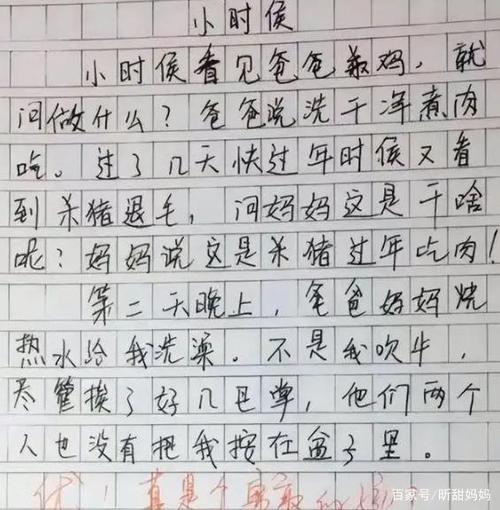 小时侯
小时侯看见爸爸,就
问做什么?爸爸说洗干净煮肉
吃。过了几天快过年时侯又看
到杀猪退毛,问妈妈这是干啥
呢?妈妈说这是杀猪过年吃肉!
第二天晚上,爸爸妈妈烧
热水给我洗澡。不是我吹牛,
尽管挨了好几巴掌,他们两个
人也没有把我按在盆子里。
优!真是个勇敢的
百家号/昕甜妈妈